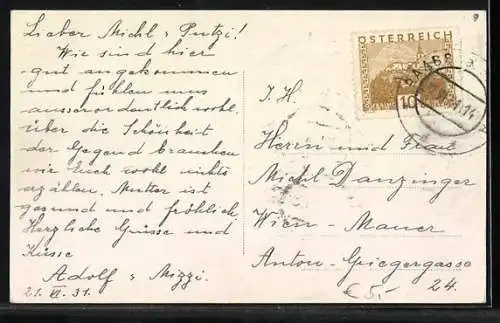 Lieber Michl & Putzi!
Wie sind hier
gut angekommen
und fühlen uns
ausserordentlich wohl.
Über die Schönheit
der Gegend brauchen
wir Euch wohl nichts
erzählen. Mutter ist
gesund und fröhlich
Herzliche Grüsse und
Küsse
Adolf & Mizzi.
21. VI. 31.
ÖSTERREICH
10
RAABS
I. H.
Herrn und Frau
Michl Danzinger
Wien - Mauer
Anton-Griegergasse
24.
€ 5,-